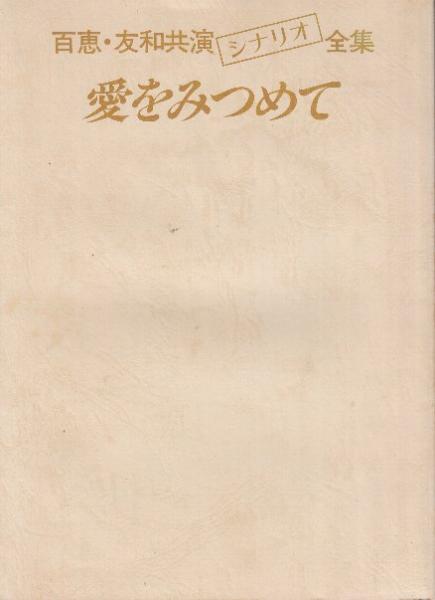 百恵・友和共演シナリオ全集
愛をみつめて